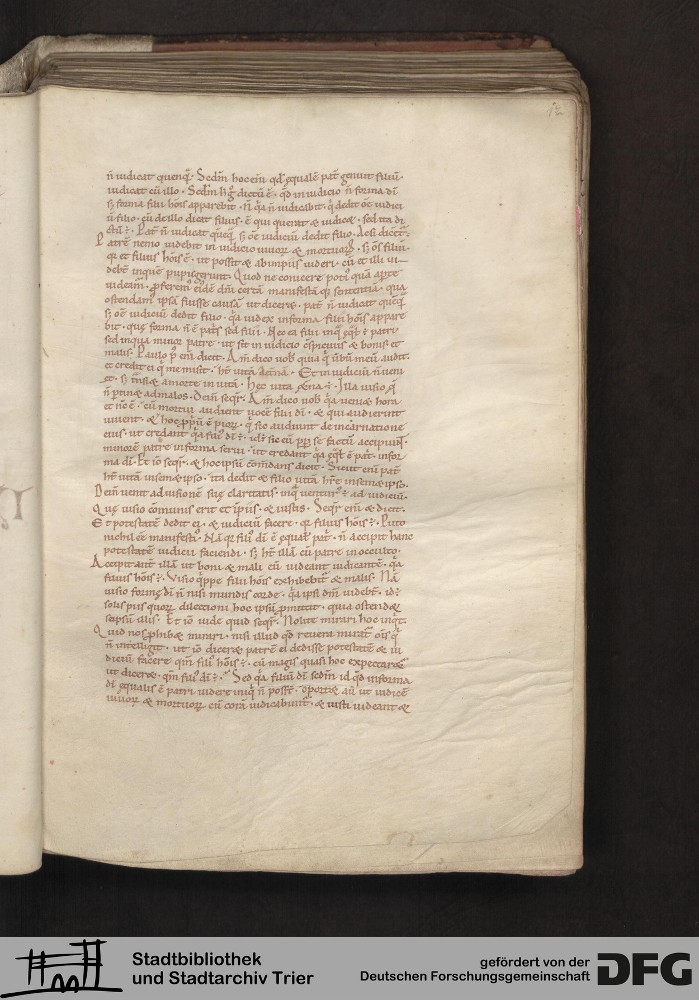 12
n̄ iudicat quenq̄. Sedm̄ hoc eni qd̓ equalē patri genuit filiū.
iudicat cū illo. Sedm̄ h̓ dictū ē. qd̓ in iudicio n̄ forma dī
sʒ forma filii hoīs apparebit. n̄ q̓a n̄ iudicabit. q̓ dedit oē iudiciū
filio. cū de illo dicit filius. ē qui querat & iudicet. sed ita dictū
ē. Pat̄ n̄ iudicat quēq̄. sʒ oē iudiciū dedit filio. Ac si dicet̄.
Patrē nemo videbit in iudicio uiuoꝝ & mortuoꝝ. sʒ oīs filiū.
qr et filius hoīs ē. ut possit & ab impiis uideri. cū et illi uidebt̄
in quē pupugerunt. Quod ne conicere potiꝰ quā apte
uideam̄. p̄ferem̄ eidē dn̄i certā manifestāq̄ sententiā. qua
ostendam̄ ipsā fuisse causā ut diceret. pat̄ n̄ iudicat quēq̄
sʒ oē iudiciū dedit filio. q̓a iudex in forma filii hoīs apparebit.
que forma n̄ ē patris sed filii. Nec ea filii in q̄ eq̄l ē patri
sed in qua minor patre. ut sit in iudicio cōspicuus & bonis et
malis. Paulo p̄ eni dicit. Am̄ dico uob̄ quia q̄ ūbū meū audit.
et credit ei q̄ me misit. ht̄ uitā aetnā. Et in iudiciū n̄ ueniet.
sʒ transiet a morte in uitā. Hec uita etna ē. Illa uisio q̄
n̄ ptinet ad malos. Dein̄ seqr̄. Am̄ dico uob̄ q̓a ueniet hora
et nc̄ ē. cū mortui audient uocē filii dī. & qui audierint
uiuent. & hoc ppriū ē pioꝝ. q̄ sic audiunt de incarnatione
eius. ut credant q̓a filiꝰ dī ē. id ē sic eū ppt̄ se factū accipiunt.
minorē patre in forma serui. ut credant q̓a eq̄l ē patri. in forma
dī. Et iō seqr̄. & hoc ipsū cōmdans dicit. Sicut eni pat̄
ht̄ uitā in semetipso. ita dedit & filio uitā hr̄e in semetipso.
Dein̄ uenit ad uisionē suę claritatis. in q̄ uenturꝰ ē ad iudiciū.
Quę uisio cōmunis erit et impiis. & iustis. Seqr̄ eni & dicit.
Et potestatē dedit ei. & iudiciū facere. qr filius hoīs ē. Puto
nichil ēē manifestiꝰ. Nā qr filiꝰ dī ē equal̄ patri. n̄ accipit hanc
potestatē iudicii faciendi. sʒ ht̄ illā cū patre in occulto.
Accipit aut̄ illā ut boni & mali eū uideant iudicantē. q̓a
filius hoīs ē. Visio q̄ppe filii hoīs exhibebit̄ & malis. Nā
uisio formę dī n̄ nisi mundis corde. q̓a ipsi dm̄ uidebt̄. id ē
solis piis quoꝝ dilectioni hoc ipsū pmittit. quia ostendet
seipsū illis. Et iō uide quid seqr̄. Nolite mirari hoc inqt̄.
Quid nos phibet mirari. nisi illud qd̓ reuera mirat̄ oīs q̄
n̄ intelligit. ut iō diceret patrē ei dedisse potestatē & iudiciū
facere qm̄ filiꝰ hoīs ē. cū magis quasi hoc expectaret̄
ut diceret. qm̄ filiꝰ dī ē. Sed q̓a filiū dī sedm̄ id qd̓ in forma
dī equalis ē patri uidere iniqi n̄ posst̄. oportet aū ut iudicē
uiuoꝝ & mortuoꝝ cū corā iudicabunt̄. & iusti uideant &
Stadtbibliothek
und Stadtarchiv Trier
gefördert von der
Deutschen Forschungsgemeinschaft
DFG